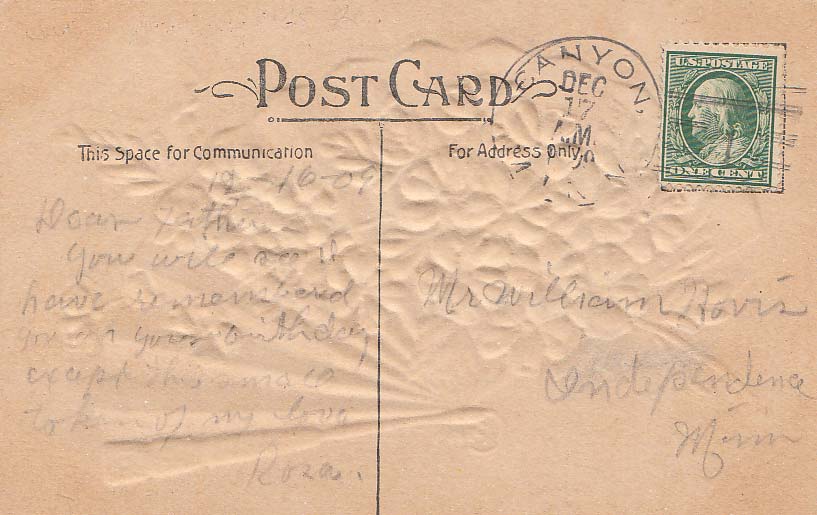 POST CARD
CANYON,
DEC
17
AM
MINN
U.S. POSTAGE
ONE CENT
This Space for Communication
For Address Only.
12-16-09
Dear Father
You will see I
have remembered
you on your birthday
except this small
token of my love
Rosa.
Mr William Hovis
Independence
Minn